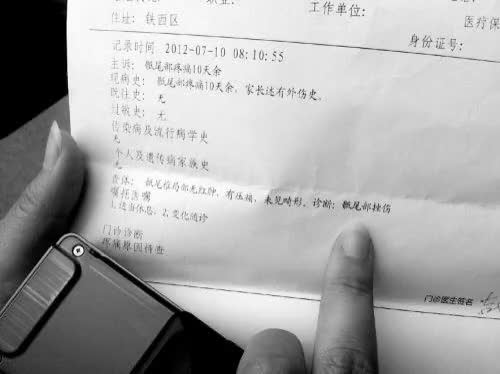 工作单位：
住址：铁西区
医疗保
身份证号：
记录时间 2012-07-10 08:10:55
主诉：骶尾部疼痛10天余
现病史：骶尾部疼痛10天余，家长述有外伤史。
既往史：无
过敏史：无
传染病及流行病学史
无
个人及遗传病家族史
无
查体：骶尾椎局部无红肿，有压痛，未见畸形。诊断：骶尾部挫伤
嘱托医嘱
1.适当休息，2.变化随诊
门诊诊断
疼痛原因待查
门诊医生签名